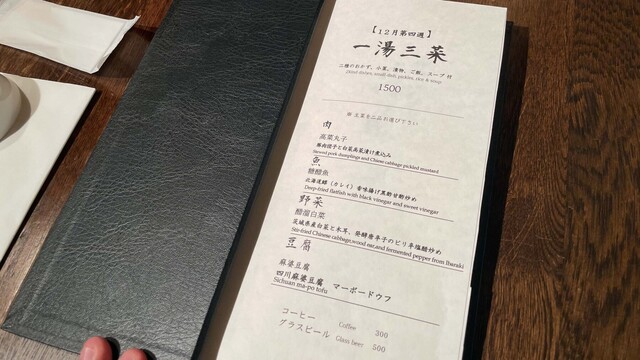 【12月第四週】
一湯三菜
二種のおかず、小菜、漬物、ご飯、スープ 付
2kind dishes, small dish, pickles, rice & soup
1500
※ 主菜を二品お選び下さい
肉
高菜丸子
豚肉団子と白菜高菜漬け煮込み
Stewed pork dumplings and Chinese cabbage pickled mustard
魚
糖醋魚
北海道鰈（カレイ）香味揚げ黒酢甘酢炒め
Deep-fried flatfish with black vinegar and sweet vinegar
野菜
醋溜白菜
茨城県産白菜と木耳、発酵唐辛子のピリ辛塩酸炒め
Stir-fried Chinese cabbage,wood ear,and fermented pepper from Ibaraki
豆腐
麻婆豆腐
四川麻婆豆腐 マーボードウフ
Sichuan ma-po tofu
コーヒー Coffee 300
グラスビール Glass beer 500